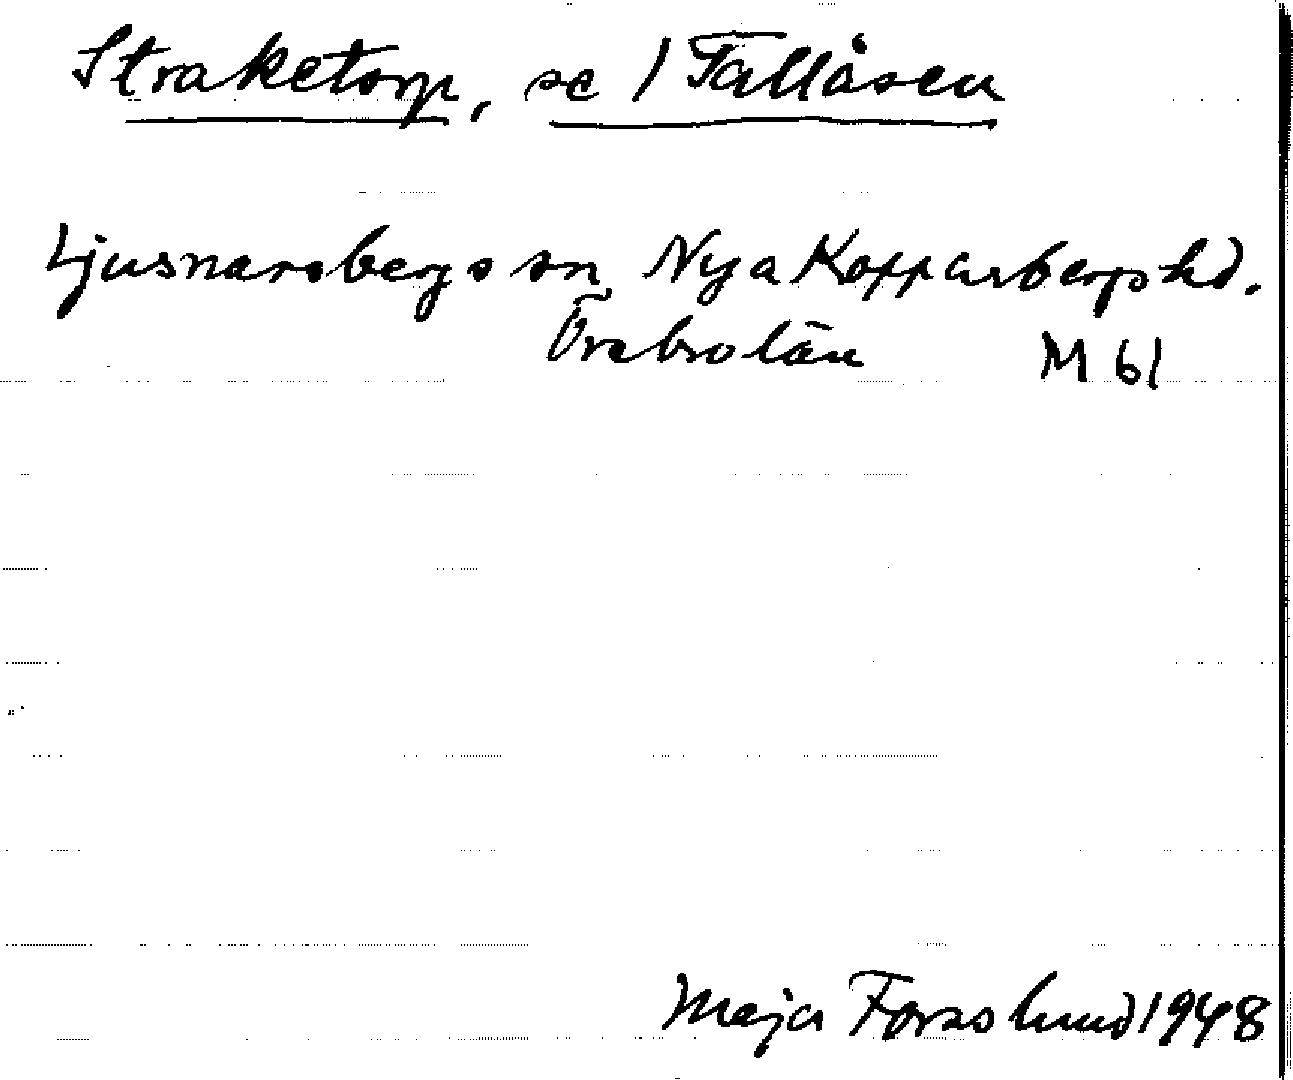 Straketorp, se / Tallåsen
Ljusnarsbergs sn Nya Kopparbergs hd.
Örebro län M 61
Maja Forsslund 1948